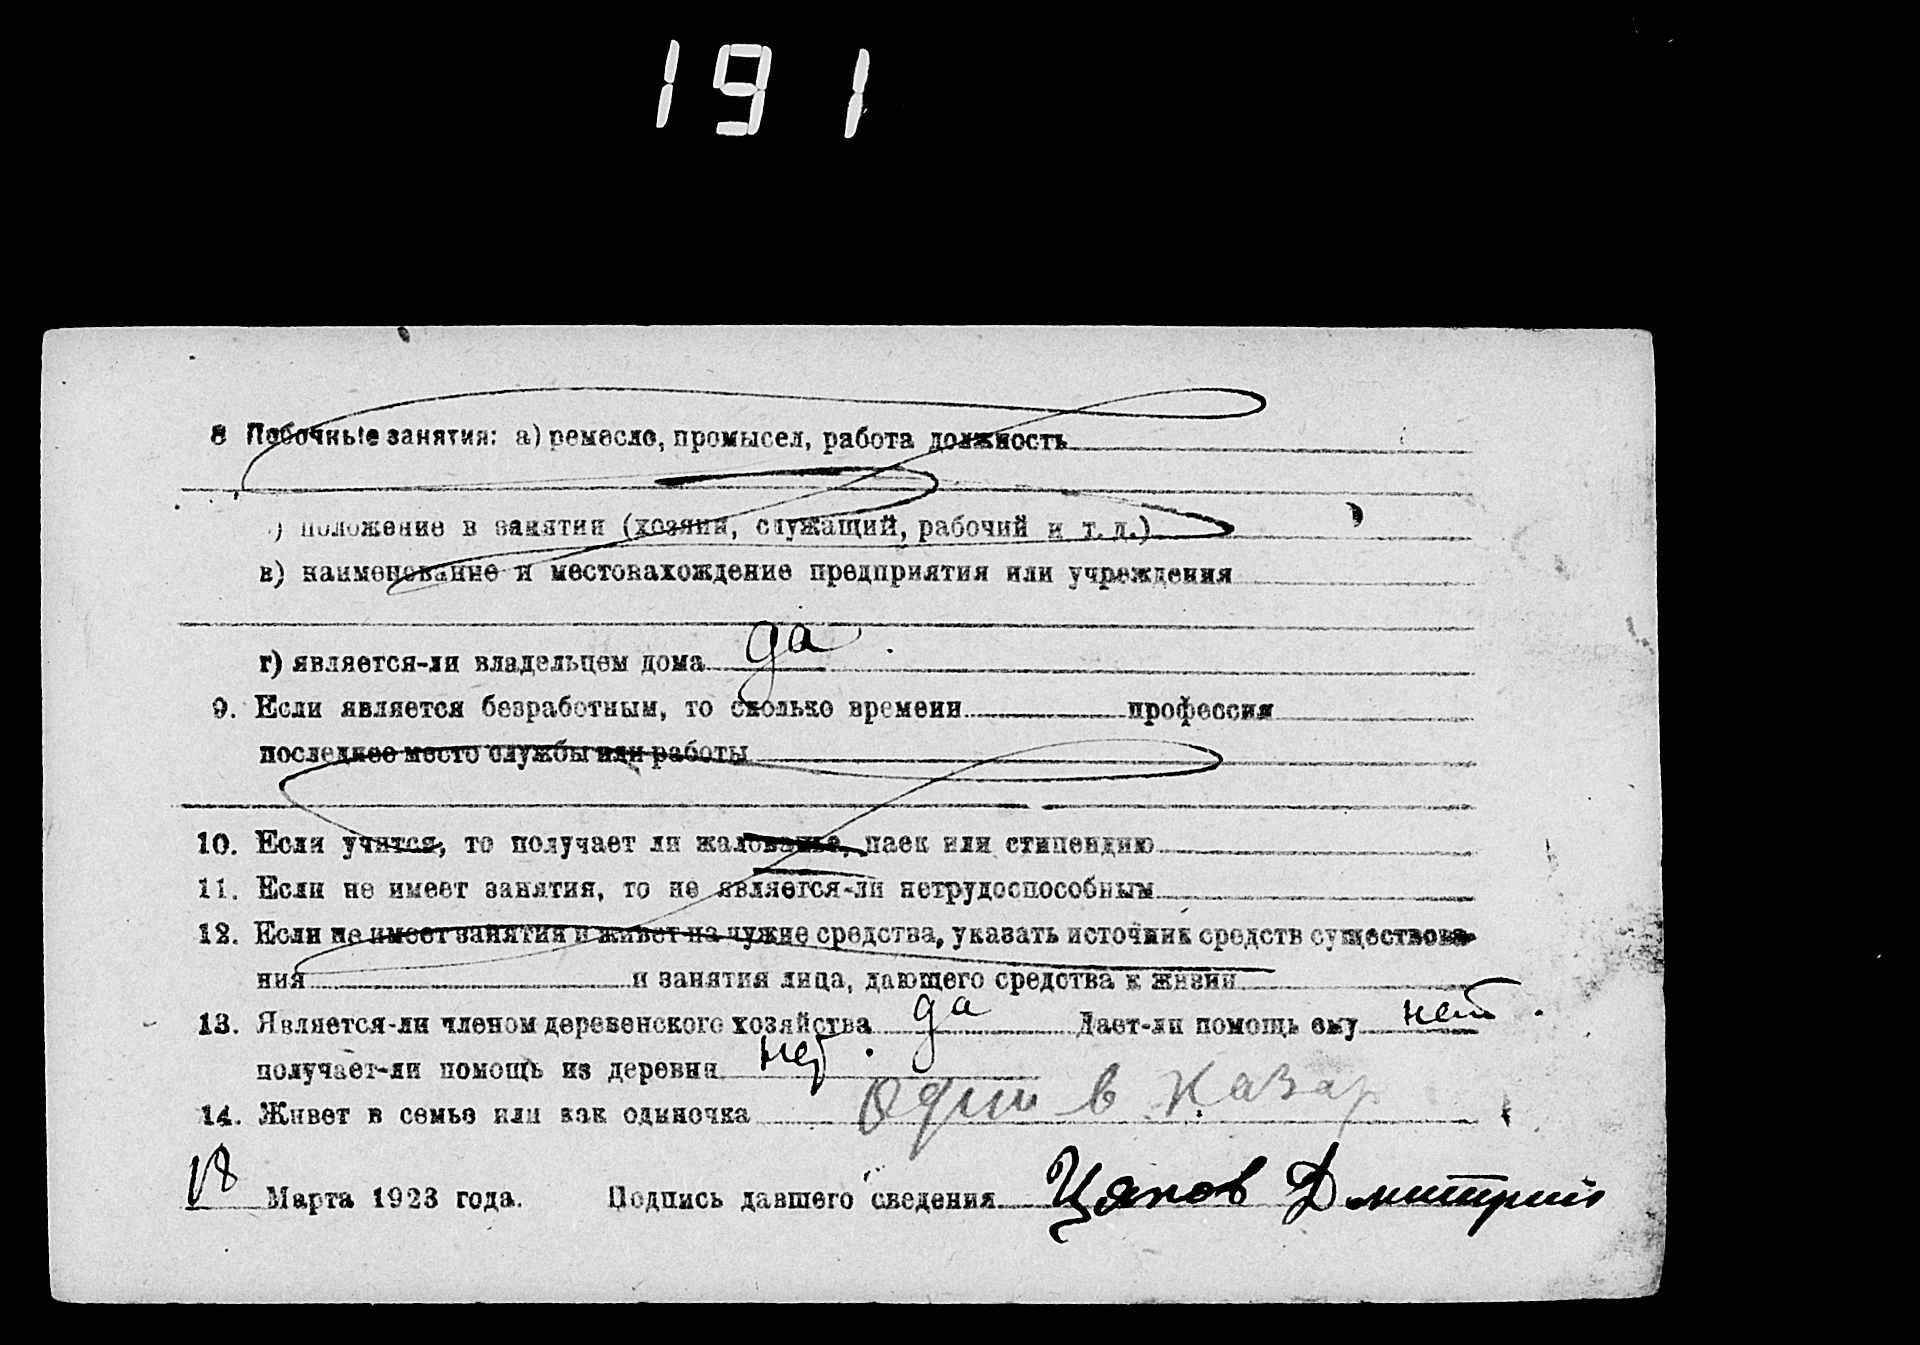 191
8 Побочные занятия: а) ремесло, промысел, работа должность
) положение в занятии (хозяин, служащий, рабочий и т. д.)
в) наименование и местонахождение предприятия или учреждения
г) является-ли владельцем дома да
9. Если является безработным, то сколько времени профессия
последнее место службы или работы
10. Если учится, то получает ли жалованье, паек или стипендию
11. Если не имеет занятия, то не является-ли нетрудоспособным
12. Если не имеет занятия и живет на чужие средства, указать источник средств существова-
ния и занятия лица, дающего средства к жизни
13. Является-ли членом деревенского хозяйства да Дает-ли помощь ему нет.
получает-ли помощь из деревни нет.
14. Живет в семье или как одиночка один в казар
18 Марта 1923 года. Подпись давшего сведения Цяпов Дмитрий